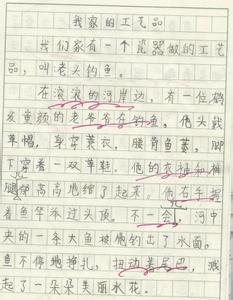 我家的工艺品
我们家有一个瓷器做的工艺
品，叫老头钓鱼。
在滚滚的河岸边，有一位鹤
发童颜的老爷爷在钓鱼。他头戴
草帽，身穿蓑衣，腰背鱼篓，脚
下穿着一双草鞋。他的衣袖和裤
腿高高地绾了起来。他右手握
着鱼竿举过头顶。不一会，河中
央的一条大鱼被他钓出了水面，
鱼不停地挣扎，扭动着尾巴，溅
起了一朵朵美丽水花。